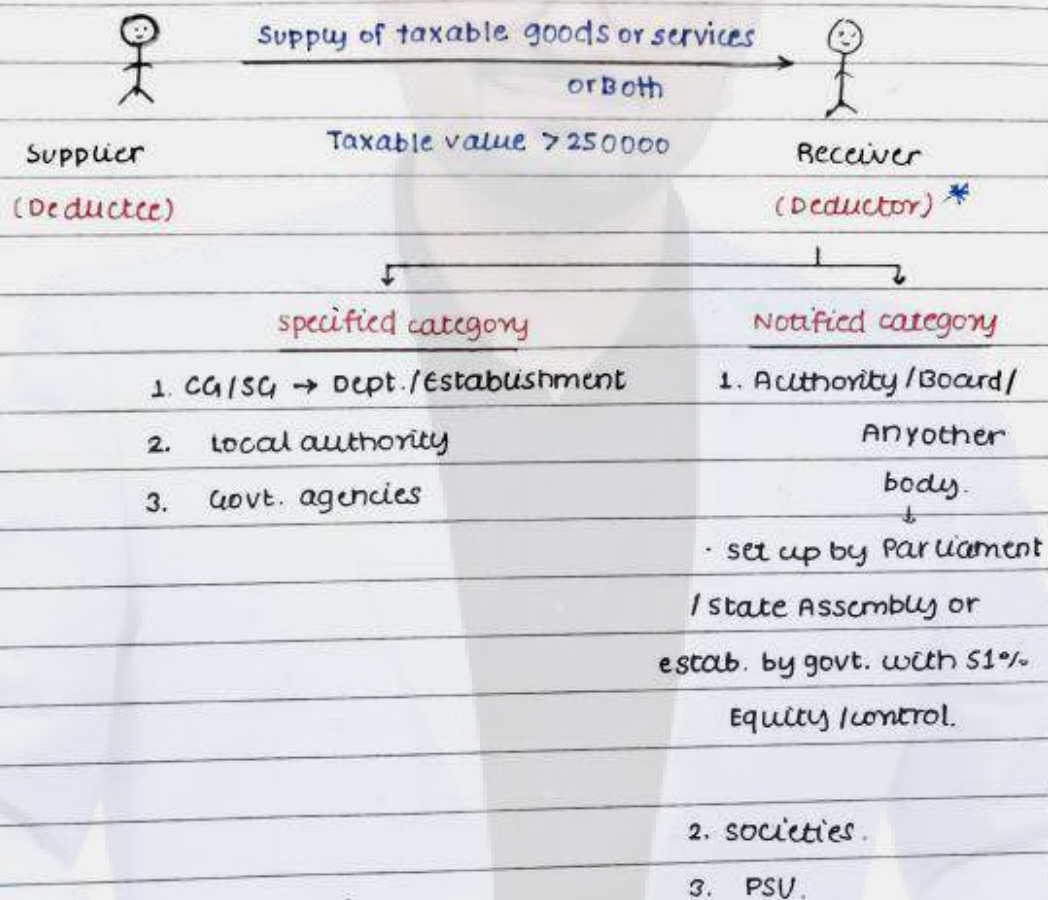 Supply of taxable goods or services
or Both
Taxable value > 250000
Supplier
Receiver
(Deductee)
(Deductor) *
specified category
Notified category
1. CG/SG → Dept./Establishment
2. Local authority
3. Govt. agencies
1. Authority/Board/
Anyother
body.
↓
· set up by Parliament
/ State Assembly or
estab. by govt. with 51%
Equity /control.
2. societies.
3. PSU.